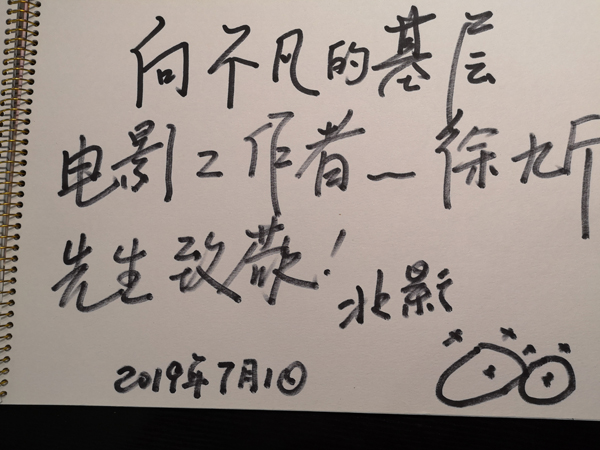 向不凡的基层
电影工作者—徐九斤
先生致敬！
北影
2019年7月1日